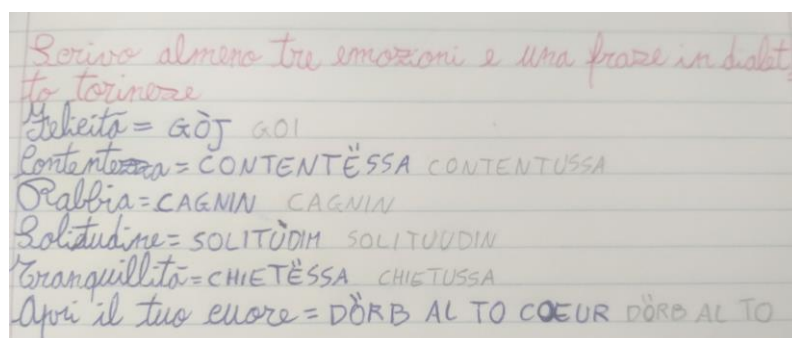 Scrivo almeno tre emozioni e una frase in dialet
to torinese
Felicità = GÒJ GOI
Contentezza = CONTENTËSSA CONTENTUSSA
Rabbia = CAGNIN CAGNIN
Solitudine = SOLITÙDIM SOLITUUDIN
Tranquillità = CHIETËSSA CHIETUSSA
Apri il tuo cuore = DÖRB AL TO COEUR DÖRB AL TO